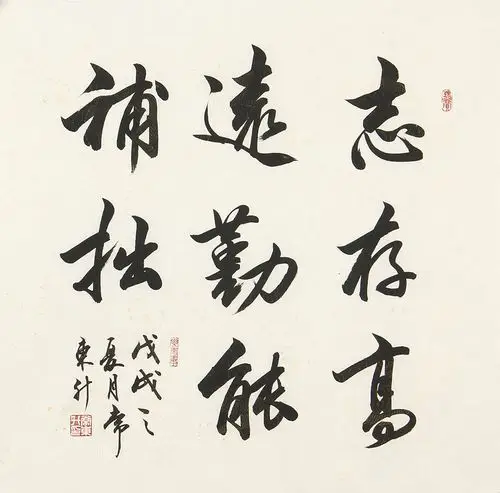 志存高
遠勤能
補拙
戊戌之
夏月常
東升